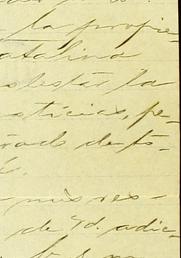 la profie-
atalina
testar la
sticias, pe-
rado de to-
s.
mis res-
de Vd. adic-